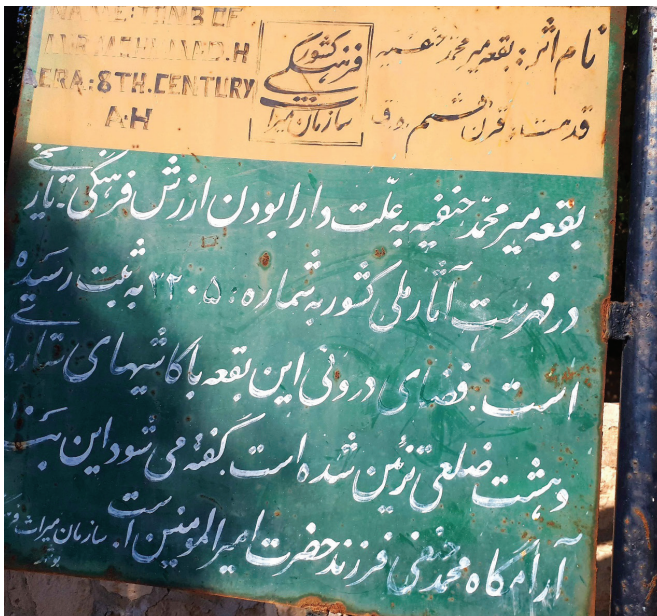 NAME: TOMB OF
AERA: 8TH.CENTURY
A.H
نام اثر: بقعه میر محمد حنفیه
قدمت: قرن هشتم ه.ق
کشور
فرهنگی
سازمان میراث
بقعه میر محمّد حنفیه به علّت دارا بودن ارزش فرهنگی-تاریخی
در فهرست آثار ملی کشور به شماره: ۲۲۰۵ به ثبت رسیده
است. فضای درونی این بقعه با کاشیهای ستاره‌ای
و هشت ضلعی تزئین شده است. گفته می شود این بنا
آرامگاه محمد حنفی فرزند حضرت امیرالمومنین است.
سازمان میراث
بوشهر